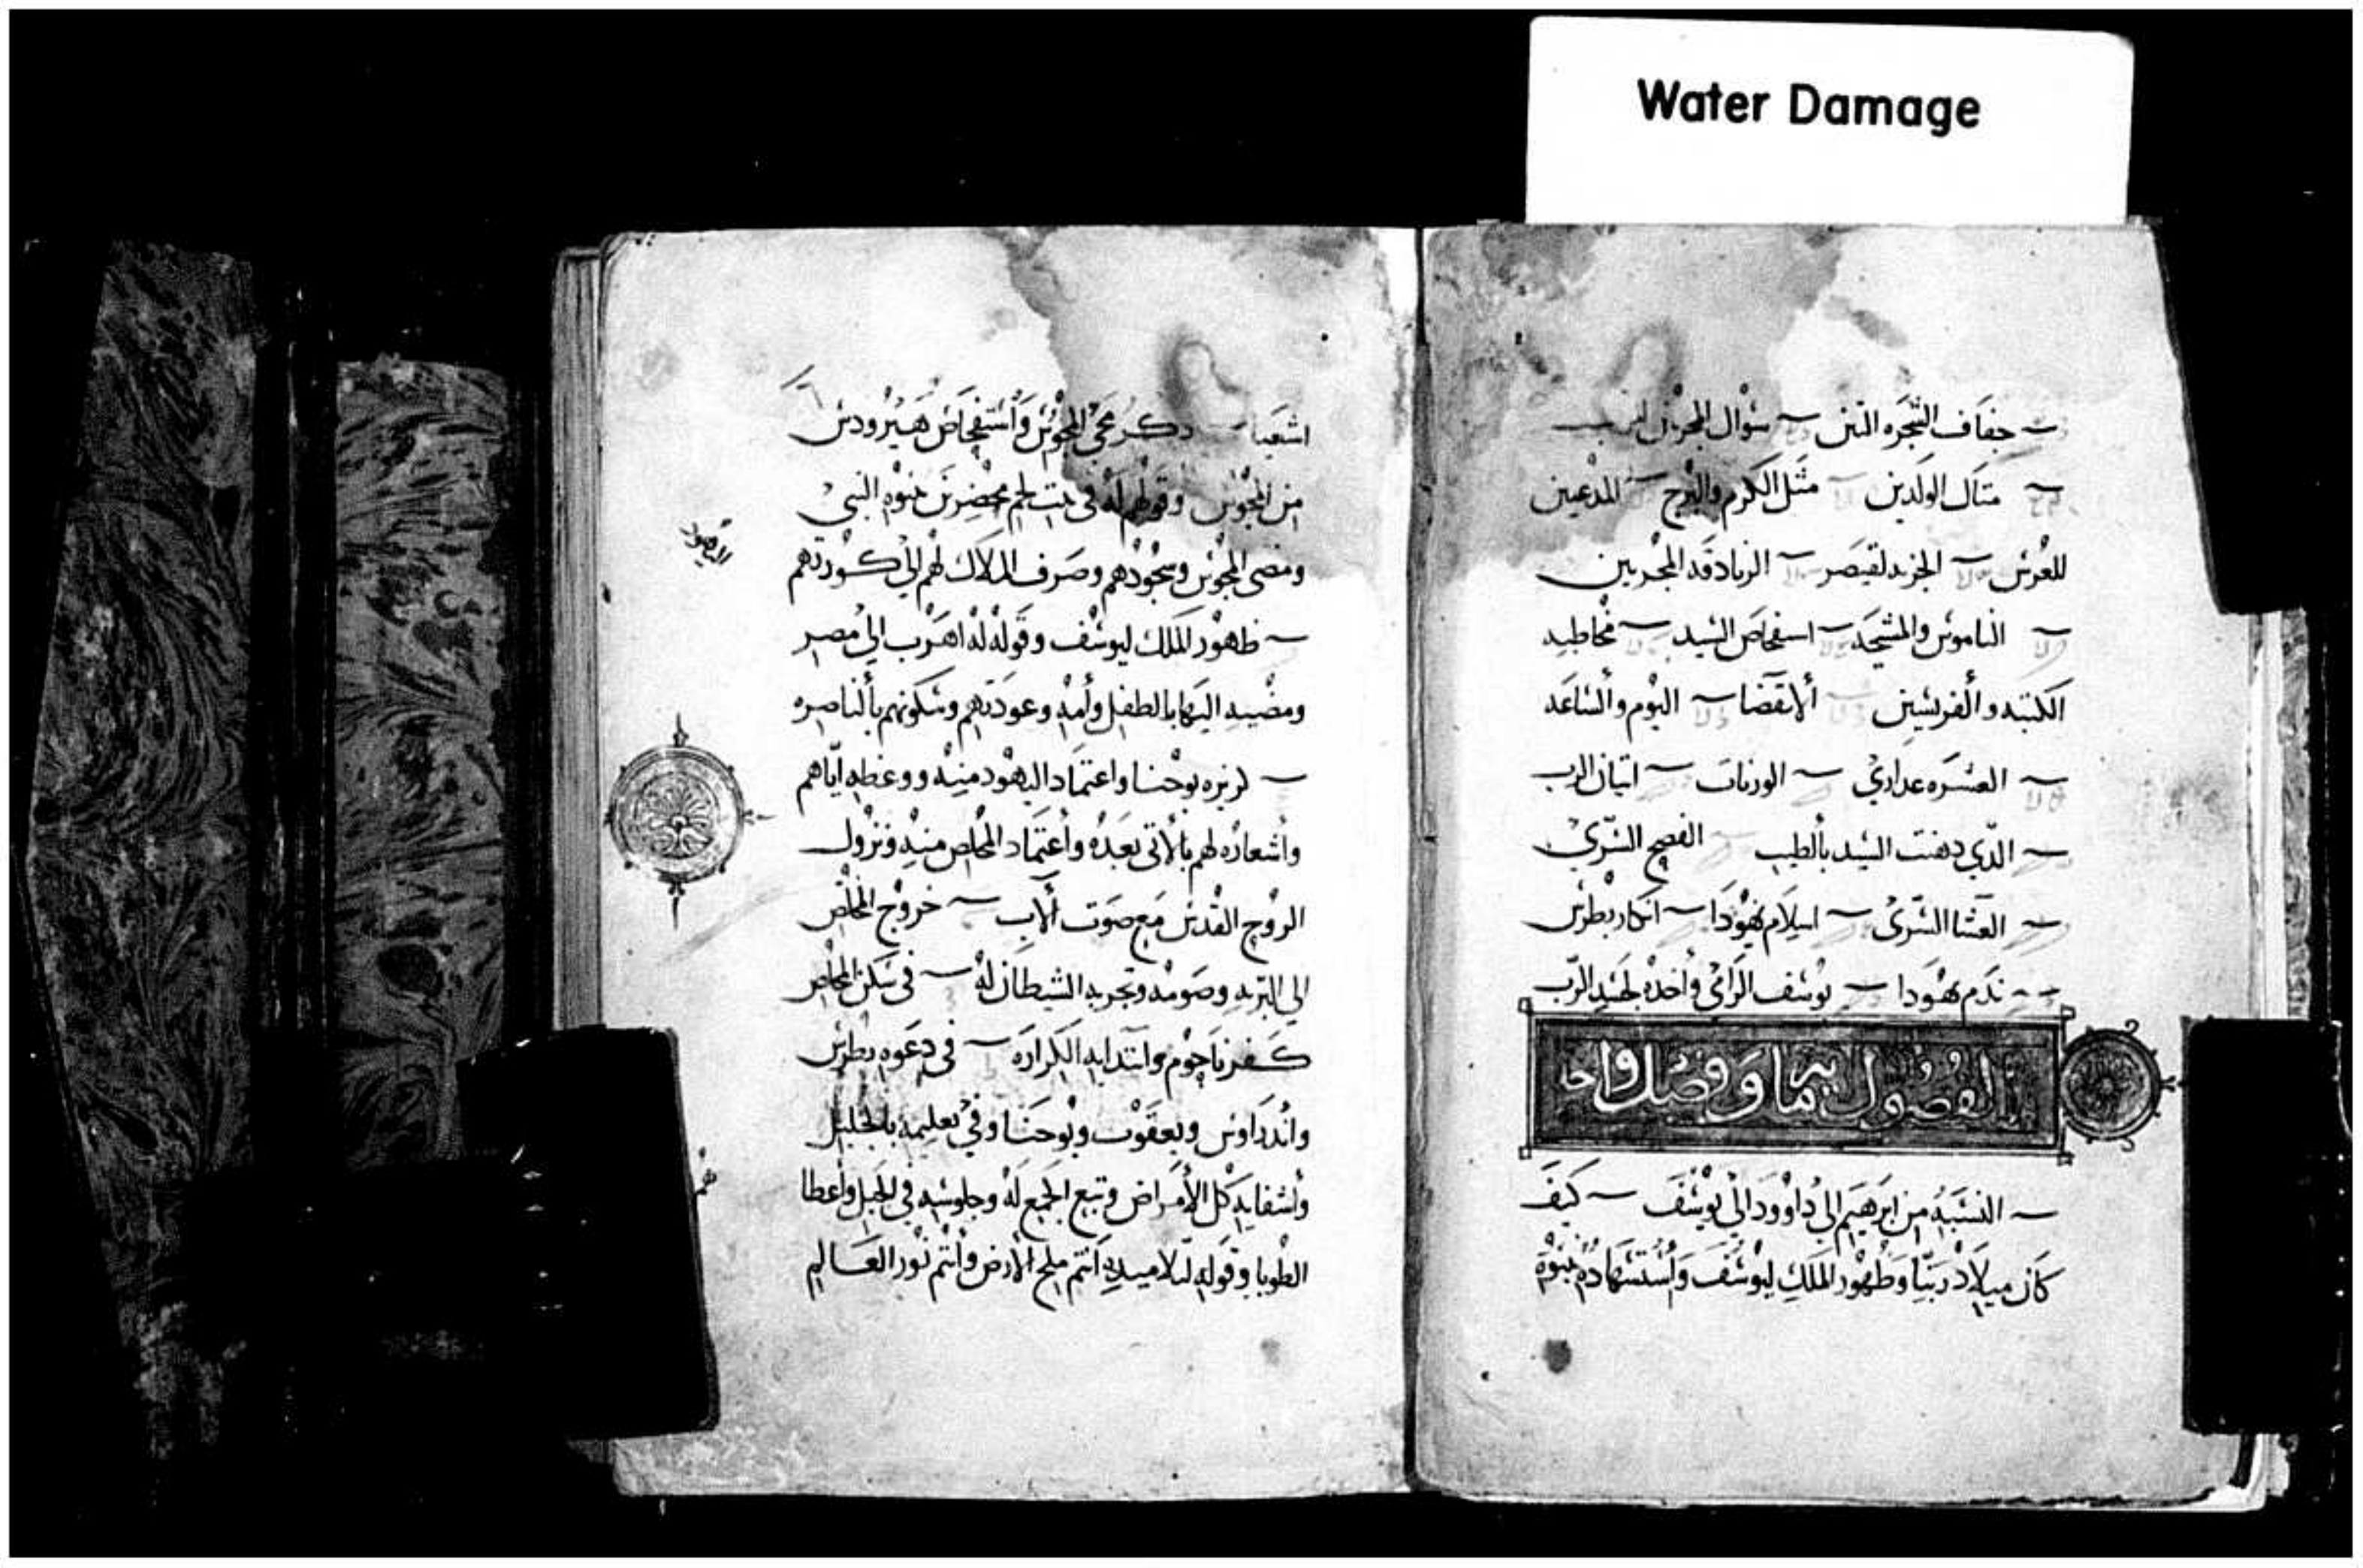 Water Damage
جفاف الشجره التين سوال المجربين
متال الولدين مثل الكرم والبرج المدعيين
للعرس الجزيه لقيصر الزنادقه المجربين
الناموس والمسيحه استفحاص السيد مخاطبه
الكتبه والفريسين ألانقضا اليوم والساعه
العسره عداري الوزنات اتيان الرب
الذي دهنت السيد بألطيب الفصح السري
العشا السري اسلام يهودا انكار بطرس
ندم يهودا يوسف الرامي وأخده لجسد الرب
الفصول مايه وفصل واحد
النسبه من ابرهيم الي داوود الي يوسف كيف
كان ميلاد ربنا وظهور الملك ليوسف وأستشهاده بنبوة
اشعيا دكر مجي المجوس وأستفحاص هيرودس
من المجوس وقولهم له في بيت لحم محضرين بنبوة النبي
ومضي المجوس وسجودهم وصرف الملاك لهم الي كورتهم
ظهور الملك ليوسف وقوله له اهرب الي مصر
ومضيه اليها بالطفل وأمه وعودتهم وسكونهم بألناصره
كرزه يوحنا واعتماد اليهود منه ووعظه اياهم
وأشعاره لهم بألاتي بعده وأعتماد المخلص منه ونزول
الروح القدس مع صوت ألاب خروج المخلص
الي البريه وصومه وتجربه الشيطان له في سكن المخلص
كفرناحوم وابتدايه الكراره في دعوه بطرس
وأندراوس ويعقوب ويوحنا وفي تعليمه بالجليل
وأشفايه كل الأمراض وتبع الجمع له وجلوسه في الجبل وأعطا
الطوبا وقوله لتلاميده أنتم ملح الأرض وأنتم نور العالم